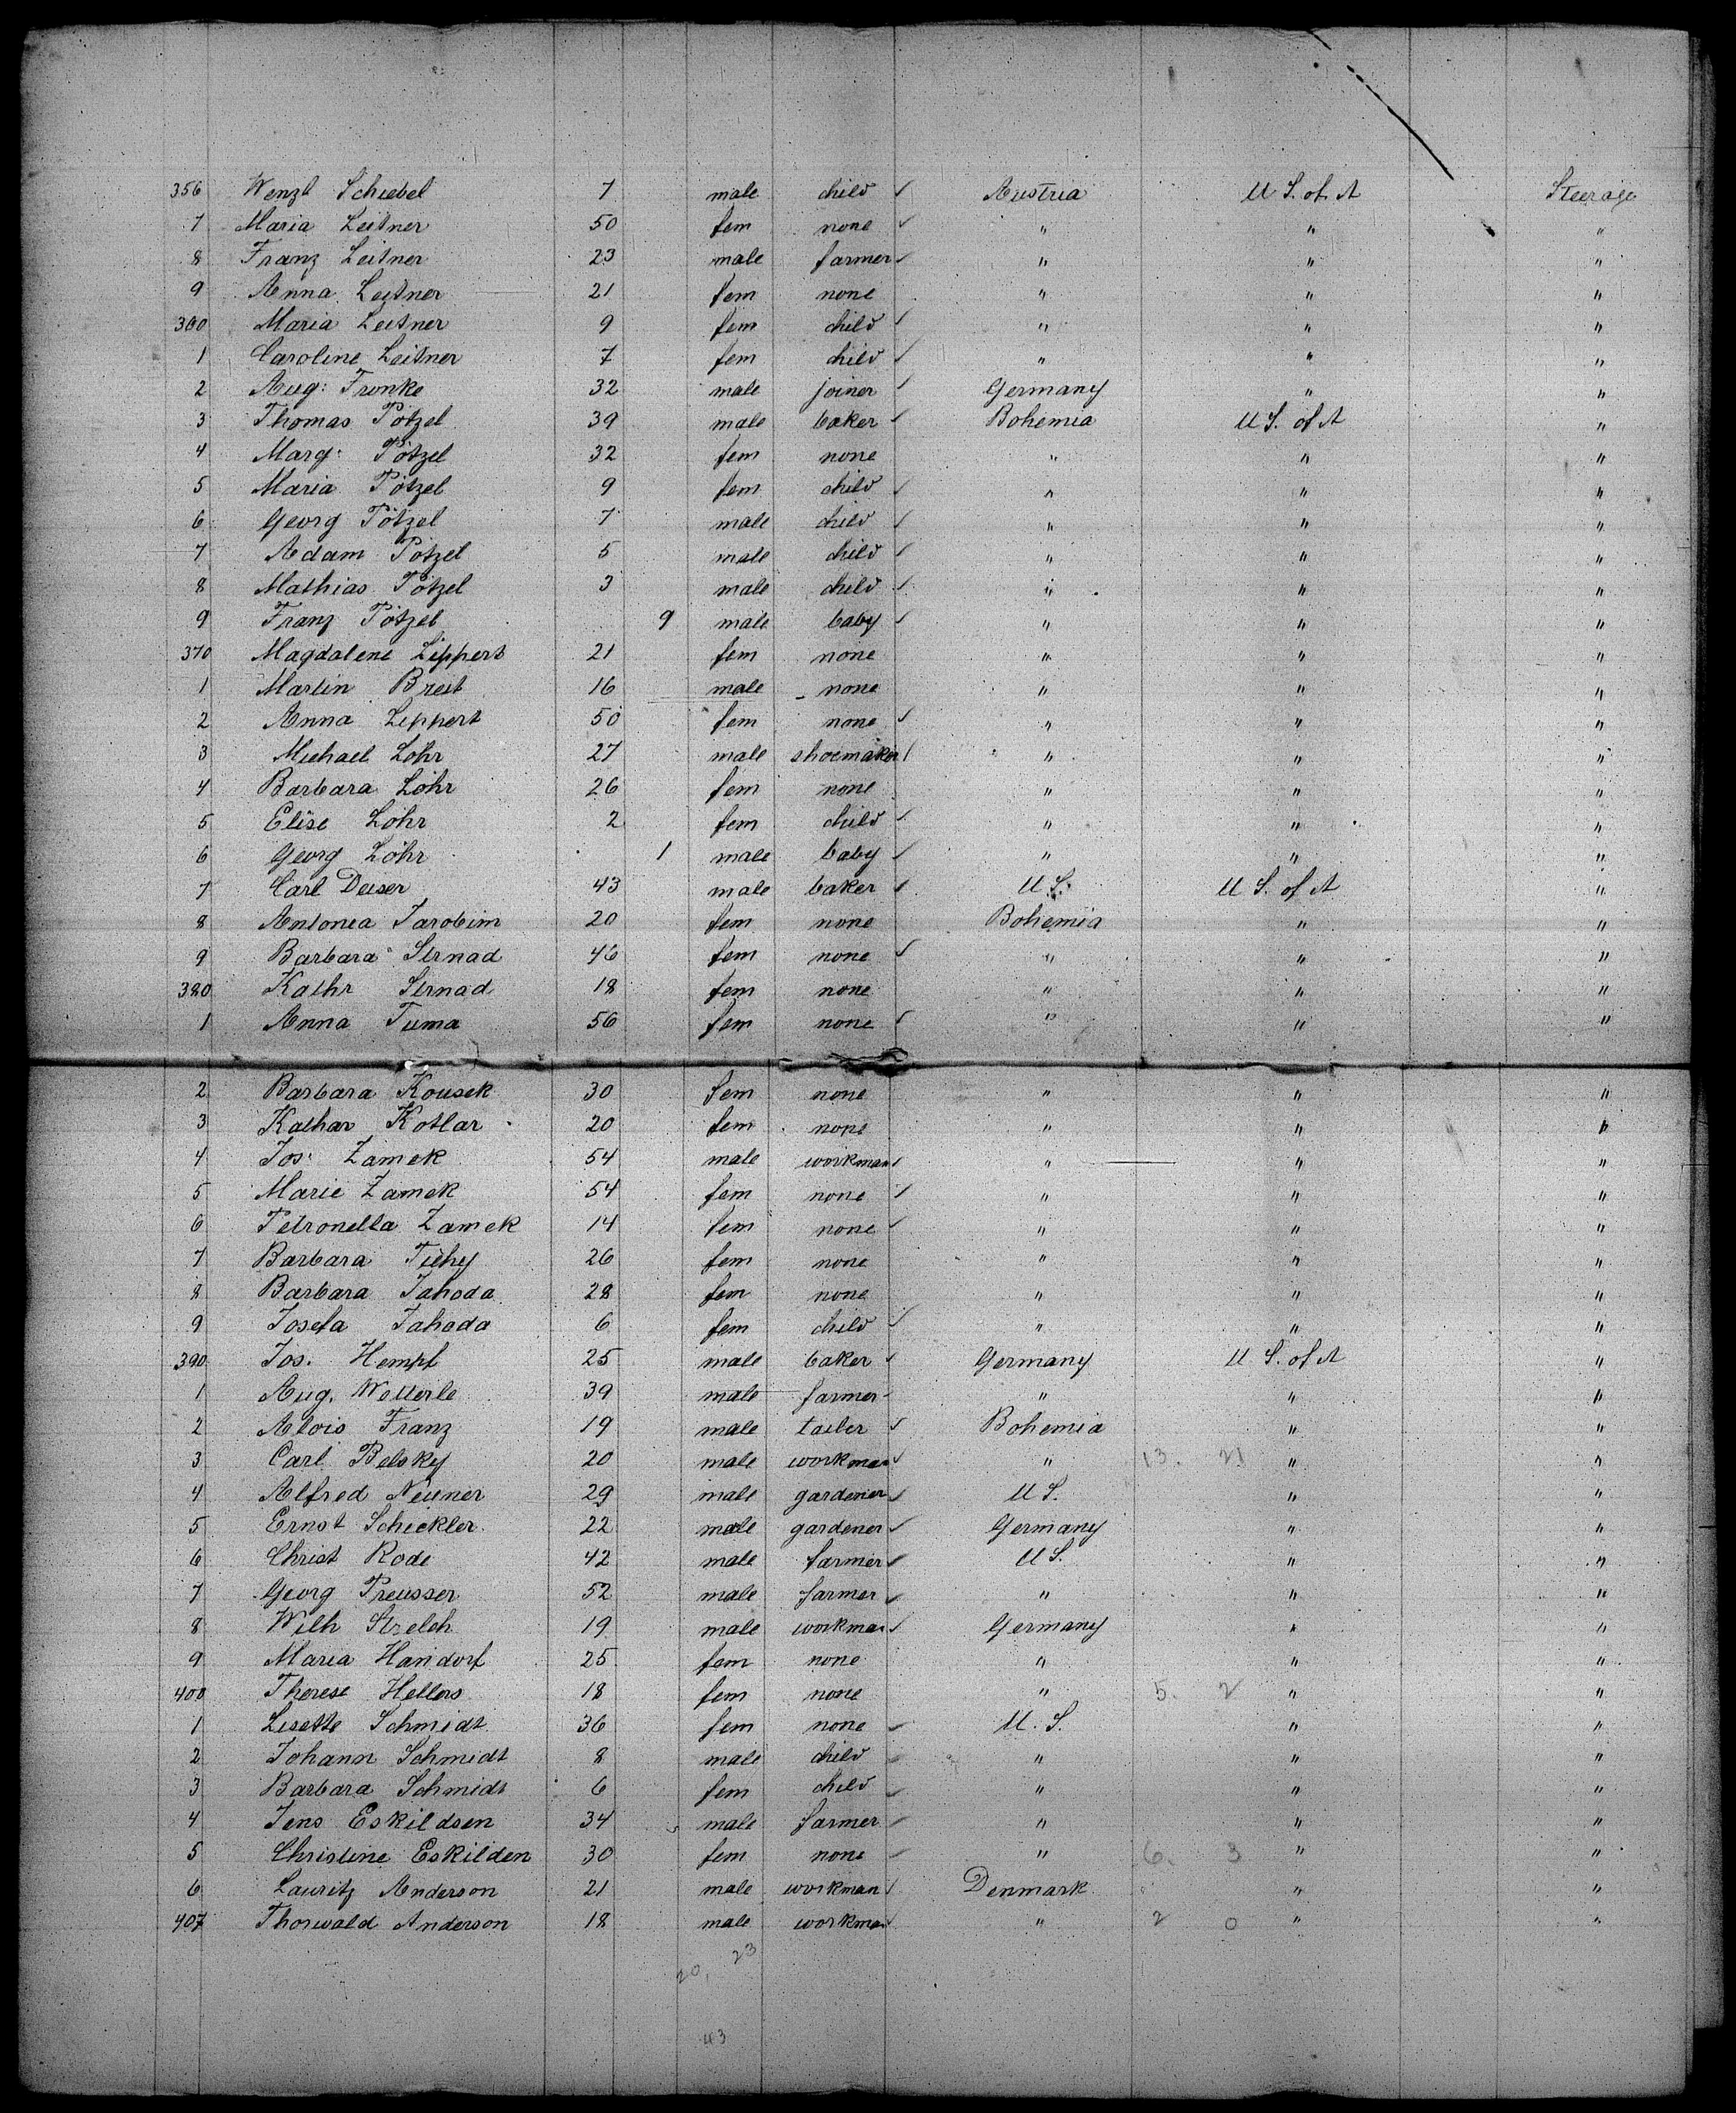 356 Wenzl Schiebel 7 male child ✓ Austria U S. of A Steerage
7 Maria Leitner 50 fem none ✓ " " "
8 Franz Leitner 23 male farmer ✓ " " "
9 Anna Leitner 21 fem none " " "
360 Maria Leitner 9 fem child ✓ " " "
1 Caroline Leitner 7 fem child ✓ " " "
2 Aug: Fronke 32 male joiner ✓ Germany " "
3 Thomas Pötzel 39 male baker ✓ Bohemia U S. of A "
4 Marg: Pötzel 32 fem none " " "
5 Maria Pötzel 9 fem child ✓ " " "
6 Georg Pötzel 7 male child ✓ " " "
7 Adam Pötzel 5 male child ✓ " " "
8 Mathias Pötzel 3 male child ✓ " " "
9 Franz Pötzel 9 male baby ✓ " " "
370 Magdalene Lippert 21 fem none " " "
1 Martin Breit 16 male none " " "
2 Anna Lippert 50 fem none ✓ " " "
3 Michael Löhr 27 male shoemaker ✓ " " "
4 Barbara Löhr 26 fem none " " "
5 Elise Löhr 2 fem child ✓ " " "
6 Georg Löhr 1 male baby ✓ " " "
7 Carl Deiser 43 male baker ✓ U S. U S. of A "
8 Antonea Jarobim 20 fem none Bohemia " "
9 Barbara Strnad 46 fem none ✓ " " "
380 Kathr Strnad 18 fem none " " "
1 Anna Tuma 56 fem none ✓ " " "
2 Barbara Kousek 30 fem none " " "
3 Kathar Kotlar 20 fem none " " "
4 Jos: Zamek 54 male workman ✓ " " "
5 Marie Zamek 54 fem none ✓ " " "
6 Petronella Zamek 14 fem none ✓ " " "
7 Barbara Tichy 26 fem none " " "
8 Barbara Jahoda 28 fem none " " "
9 Josefa Jahoda 6 fem child ✓ " " "
390 Jos. Hempf 25 male baker ✓ Germany U S. of A "
1 Aug. Wetterle 39 male farmer " " "
2 Alois Franz 19 male tailer ✓ Bohemia " "
3 Carl Belsky 20 male workman ✓ " 13. 21 " "
4 Alfred Neuner 29 male gardener ✓ U S. " "
5 Ernst Schickler 22 male gardener ✓ Germany " "
6 Christ Rode 42 male farmer ✓ U S. " "
7 Georg Preusser 52 male farmer ✓ " " "
8 Wilh Strelch 19 male workman ✓ Germany " "
9 Maria Handorf 25 fem none " " "
400 Therese Hellers 18 fem none " 5. 2 " "
1 Lisette Schmidt 36 fem none ✓ U. S. " "
2 Johann Schmidt 8 male child ✓ " " "
3 Barbara Schmidt 6 fem child ✓ " " "
4 Jens Eskildsen 34 male farmer ✓ " " "
5 Christine Eskilden 30 fem none ✓ " 6. 3 " "
6 Lauritz Anderson 21 male workman ✓ Denmark " "
407 Thorwald Anderson 18 male workman ✓ " 2 0 " "
20, 23
43